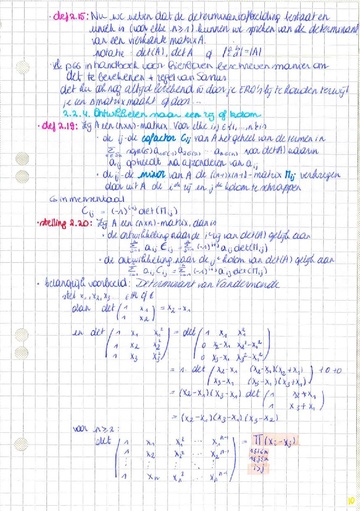 • def 2.15: Nu we weten dat de determinantafbeelding bestaat en
uniek is (voor elke n≥1) kunnen we spreken van de determinant
van een vierkante matrix A.
notatie: det(A), det A of |A|
in handboek voor
det te berekenen + regel van Sarrus
det kan altijd berekend door je ERO's bij te houden terwijl
je een matrix maakt
2.2.4. Ontwikkelen naar een rij of kolom
• def 2.19: Zij A een (n×n)-matrix. Voor elke i,j ∈ {1,...,n}
• de ij-de cofactor Cij van A het geheel van de termen in
voor det(A) waarin
aij optreedt na afzonderen van aij
• de ij-de minor van A de (n-1)×(n-1)-matrix Mij verkregen
door uit A de i-de rij en j-de kolom te schrappen
Cij = (-1)^i+j det(Mij)
• stelling 2.20: Zij A een (n×n)-matrix, dan is
• de ontwikkeling naar de i-de rij van det(A) gelijk aan
Σ aij Cij = Σ (-1)^i+j aij det(Mij)
• de ontwikkeling naar de j-de kolom van det(A) gelijk aan
Σ aij Cij = Σ (-1)^i+j aij det(Mij)
• belangrijk voorbeeld: Determinant van Vandermonde
stel x1, x2, x3 ∈ R
dan det ( 1 x1 ; 1 x2 ) = x2 - x1
en det ( 1 x1 x1² ; 1 x2 x2² ; 1 x3 x3² ) = det ( 1 x1 x1² ; 0 x2-x1 x2²-x1² ; 0 x3-x1 x3²-x1² )
= 1 · det ( x2-x1 (x2-x1)(x2+x1) ; x3-x1 (x3-x1)(x3+x1) ) + 0 + 0
= (x2-x1)(x3-x1) det ( 1 x2+x1 ; 1 x3+x1 )
= (x2-x1)(x3-x1)(x3-x2)
voor n≥2:
det ( 1 x1 x1² ... x1^n-1 ; 1 x2 x2² ... x2^n-1 ; ... ; 1 xn xn² ... xn^n-1 ) = Π (xi - xj)
1≤i≤n
1≤j≤n
i>j